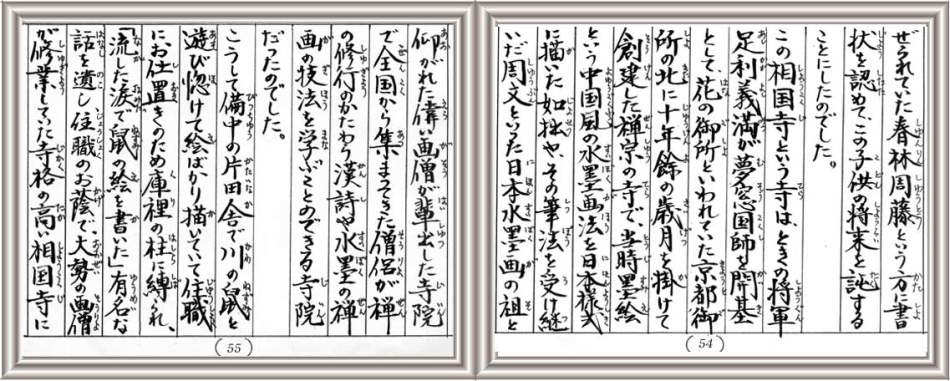 ぜられていた春林周藤という方に書
状を認めて、この子供の将来を託する
ことにしたのでした。
この相国寺という寺は、ときの将軍
足利義満が夢窓国師を開基
として、花の御所といわれていた京都御
所の北に十年餘の歳月を掛けて
創建した禅宗の寺で、当時墨絵
という中国風の水墨画法を日本様式
に描いた如拙や、その筆法を受け継
いだ周文といった日本水墨画の祖と
(54)
仰がれた偉い画僧が輩出した寺院
で全国から集まってきた僧侶が禅
の修行のかたわら漢詩や水墨の禅
画の技法を学ぶことのできる寺院
だったのでした。
こうして備中の片田舎で川の鼠と
遊び惚けて絵ばかり描いていて住職
に、お仕置きのため庫裡の柱に縛られ、
「流した涙で鼠の絵を書いた」有名な
話を遺し、住職のお蔭で、大勢の画僧
が修業していた寺格の高い相国寺に
(55)